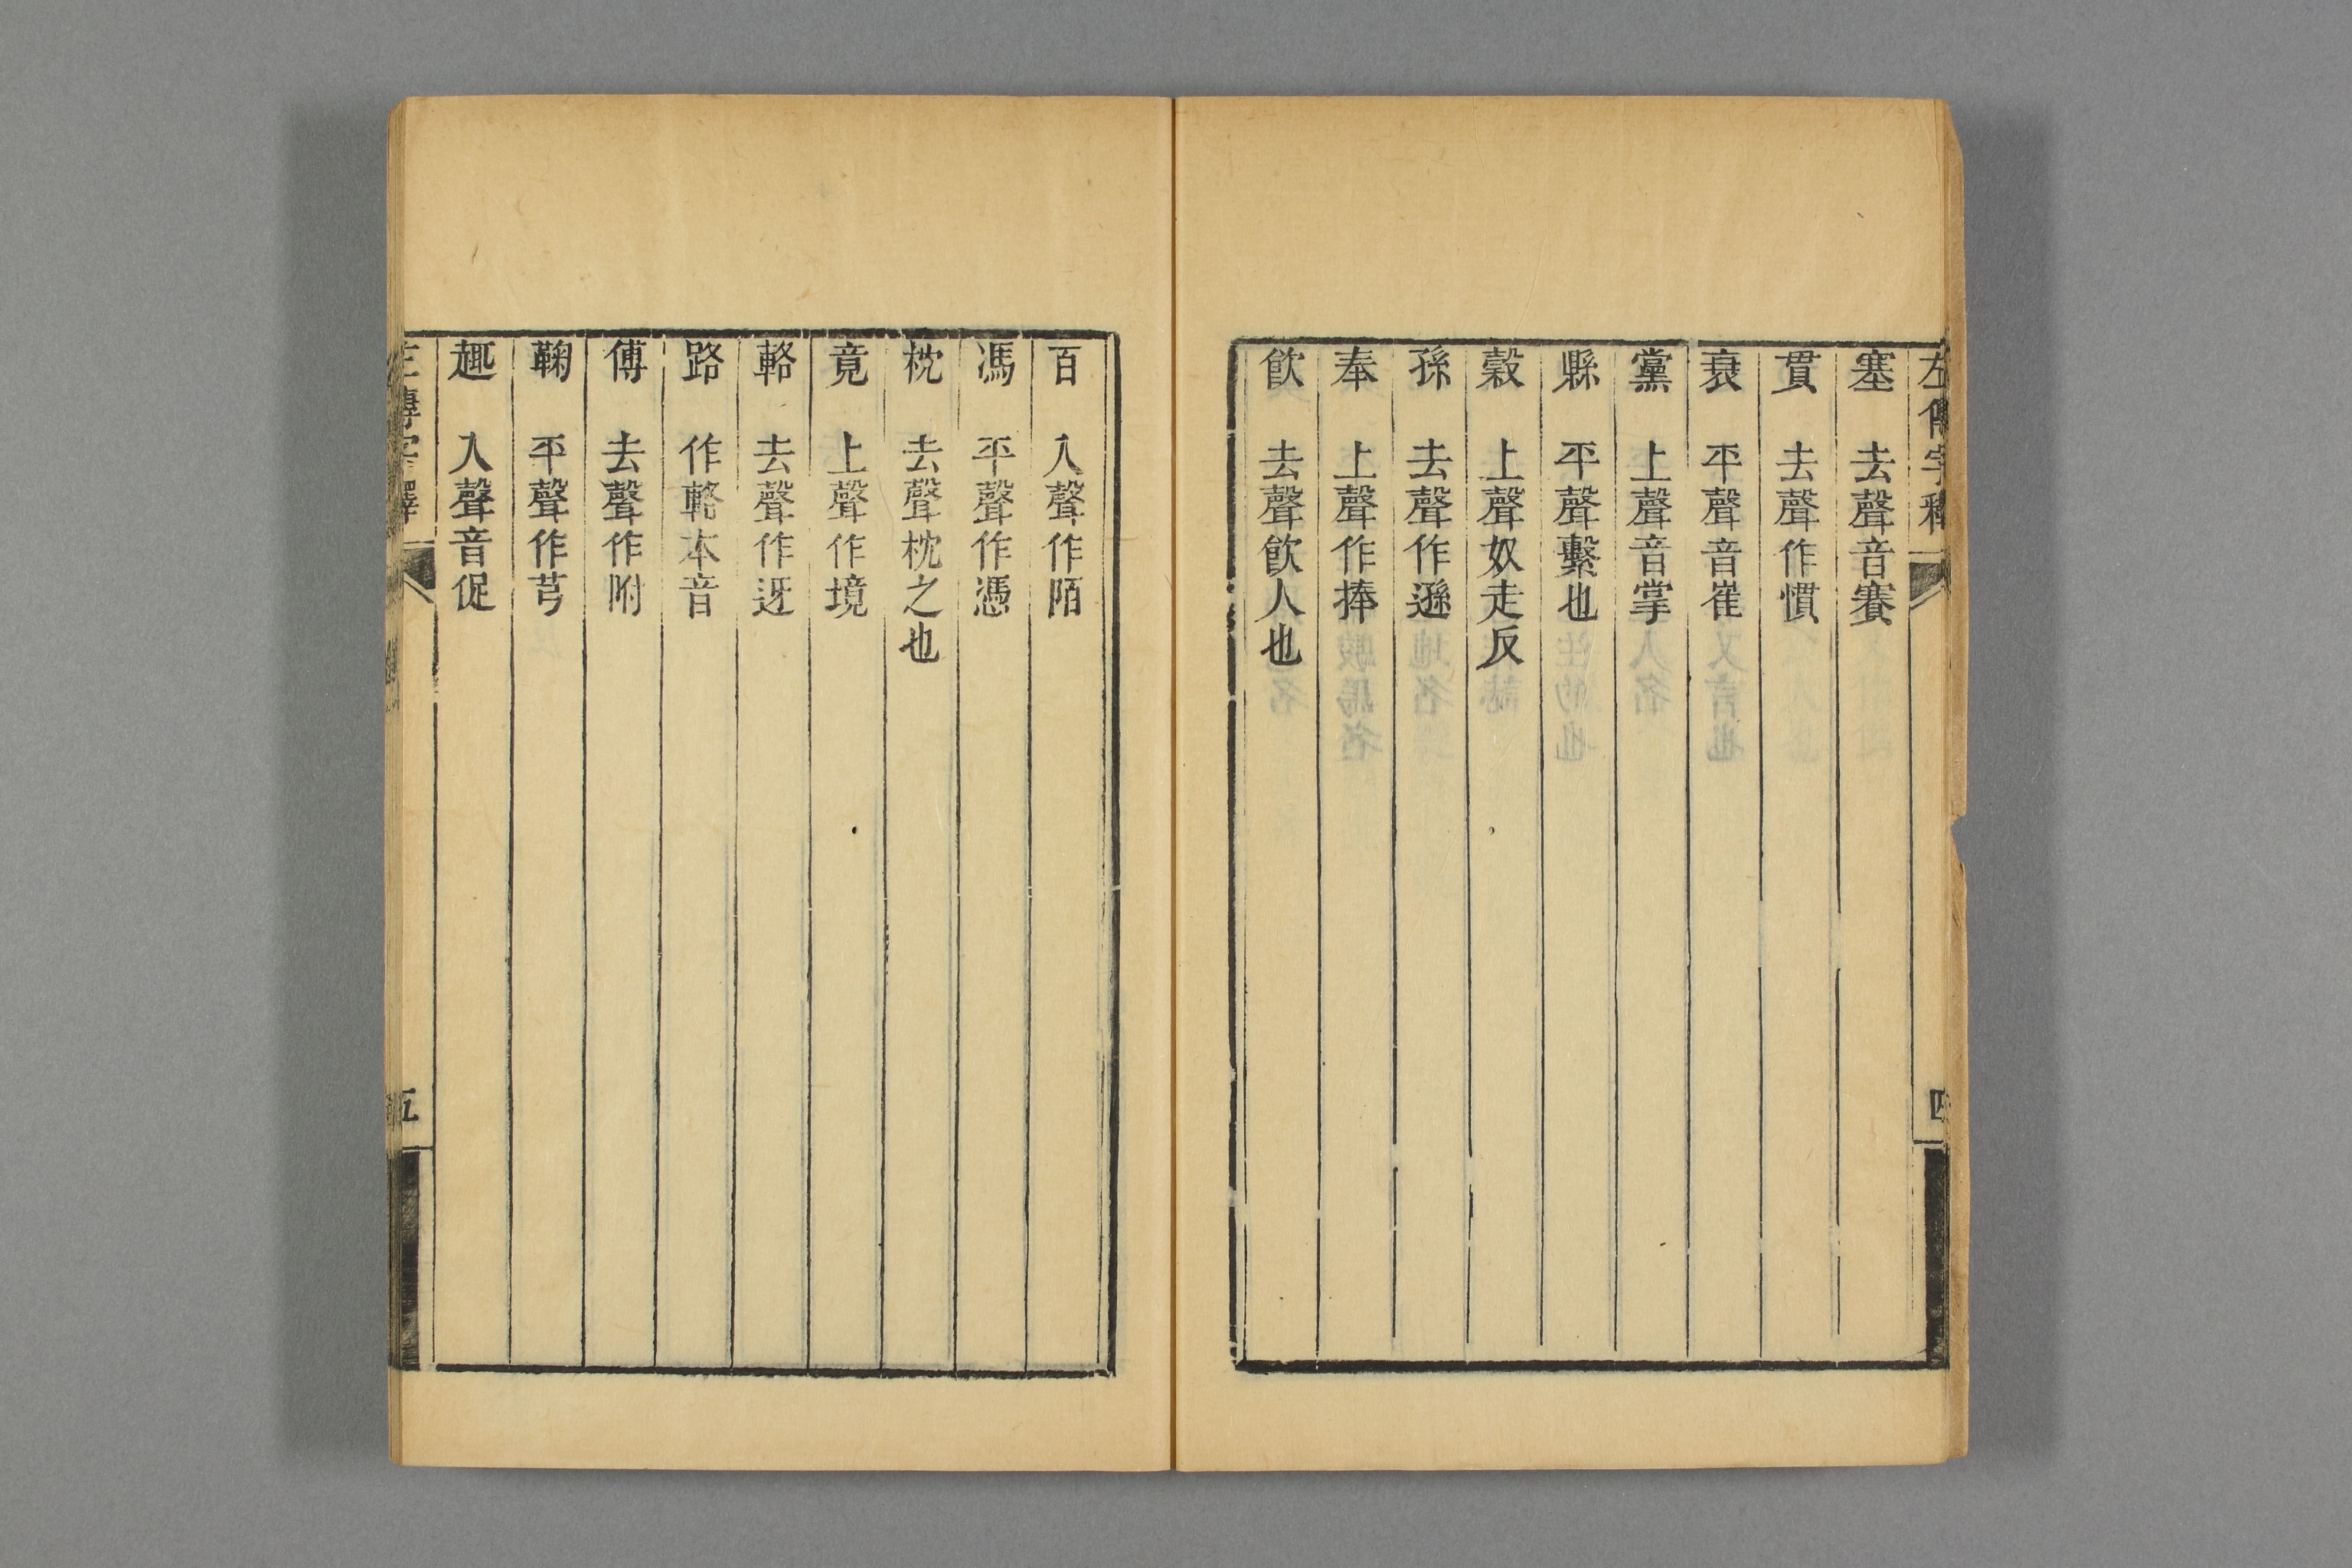 左傳字釋
四
塞 去聲音賽
貫 去聲作慣
衰 平聲音崔
黨 上聲音掌
縣 平聲繫也
穀 上聲奴走反
孫 去聲作遜
奉 上聲作捧
飲 去聲飲人也
百 入聲作陌
馮 平聲作憑
枕 去聲枕之也
竟 上聲作境
輅 去聲作迓
路 作輅本音
傅 去聲作附
鞠 平聲作芎
趣 入聲音促
左傳字釋
五